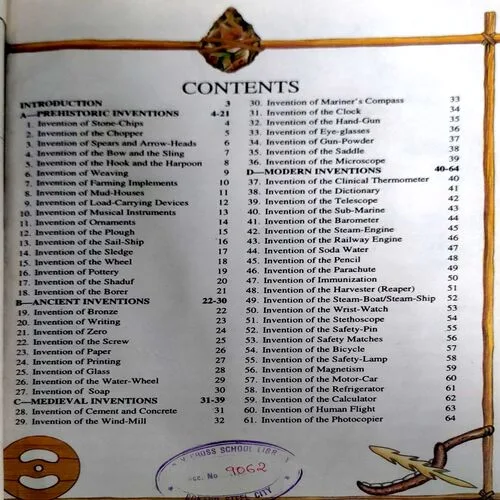 CONTENTS
INTRODUCTION 3
A—PREHISTORIC INVENTIONS 4-21
1. Invention of Stone-Chips 4
2. Invention of the Chopper 5
3. Invention of Spears and Arrow-Heads 6
4. Invention of the Bow and the Sling 7
5. Invention of the Hook and the Harpoon 8
6. Invention of Weaving 9
7. Invention of Farming Implements 10
8. Invention of Mud-Houses 11
9. Invention of Load-Carrying Devices 12
10. Invention of Musical Instruments 13
11. Invention of Ornaments 14
12. Invention of the Plough 15
13. Invention of the Sail-Ship 16
14. Invention of the Sledge 17
15. Invention of the Wheel 18
16. Invention of Pottery 19
17. Invention of the Shaduf 20
18. Invention of the Borer 21
B—ANCIENT INVENTIONS 22-30
19. Invention of Bronze 22
20. Invention of Writing 23
21. Invention of Zero 24
22. Invention of the Screw 25
23. Invention of Paper 26
24. Invention of Printing 27
25. Invention of Glass 28
26. Invention of the Water-Wheel 29
27. Invention of Soap 30
C—MEDIEVAL INVENTIONS 31-39
28. Invention of Cement and Concrete 31
29. Invention of the Wind-Mill 32
30. Invention of Mariner's Compass 33
31. Invention of the Clock 34
32. Invention of the Hand-Gun 35
33. Invention of Eye-glasses 36
34. Invention of Gun-Powder 37
35. Invention of the Saddle 38
36. Invention of the Microscope 39
D—MODERN INVENTIONS 40-64
37. Invention of the Clinical Thermometer 40
38. Invention of the Dictionary 41
39. Invention of the Telescope 42
40. Invention of the Sub-Marine 43
41. Invention of the Barometer 44
42. Invention of the Steam-Engine 45
43. Invention of the Railway Engine 46
44. Invention of Soda Water 47
45. Invention of the Pencil 48
46. Invention of the Parachute 49
47. Invention of Immunization 50
48. Invention of the Harvester (Reaper) 51
49. Invention of the Steam-Boat/Steam-Ship 52
50. Invention of the Wrist-Watch 53
51. Invention of the Stethoscope 54
52. Invention of the Safety-Pin 55
53. Invention of Safety Matches 56
54. Invention of the Bicycle 57
55. Invention of the Safety-Lamp 58
56. Invention of Magnetism 59
57. Invention of the Motor-Car 60
58. Invention of the Refrigerator 61
59. Invention of the Calculator 62
60. Invention of Human Flight 63
61. Invention of the Photocopier 64
CROSS SCHOOL
No 9062
STEEL CITY